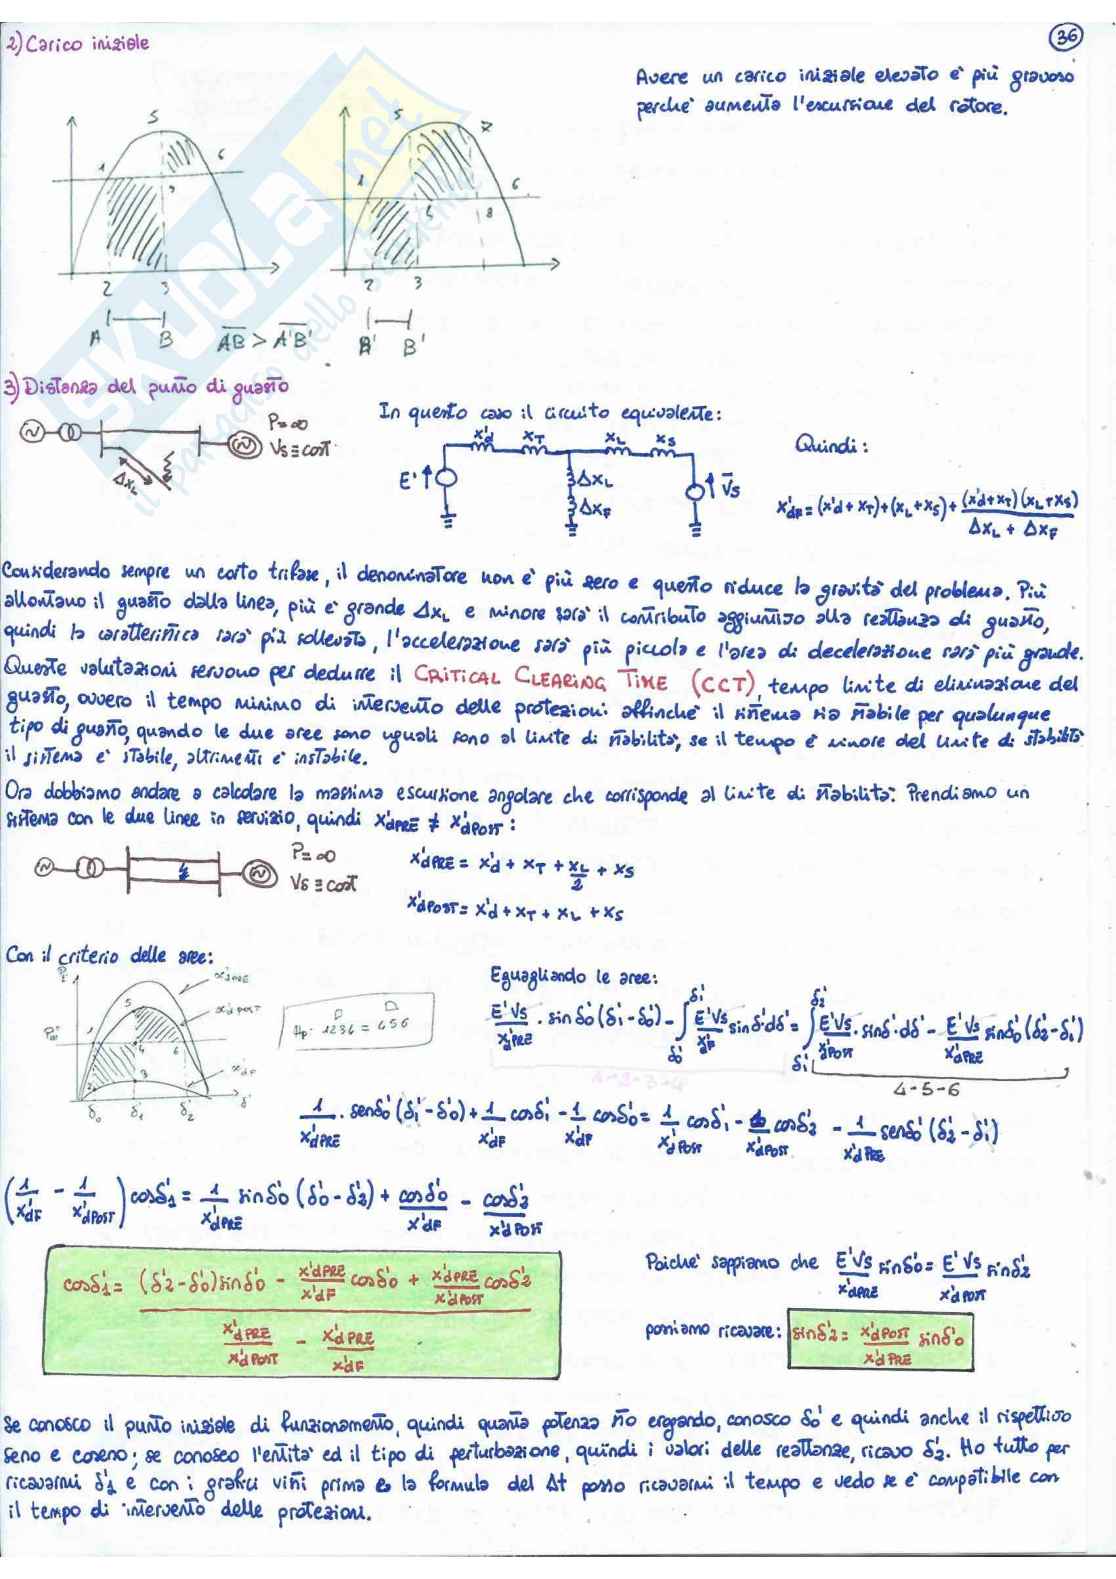 36
2) Carico iniziale
Avere un carico iniziale elevato e' più gravoso
perche' aumenta l'escursione del rotore.
1 5 6 2 3
1 5 7 6 4 8 2 3
A B AB > A'B' B'
3) Distanza del punto di guasto
P=∞
Vs≡cost
ΔxL
In questo caso il circuito equivalente:
x'd xT xL xS
E' ΔxL ΔxF V̄s
Quindi:
x'dF = (x'd + xT) + (xL + xS) + (x'd + xT)(xL + xS) / (ΔxL + ΔxF)
Considerando sempre un corto trifase, il denominatore non e' più zero e questo riduce la gravità del problema. Più
allontano il guasto dalla linea, più e' grande ΔxL e minore sarà il contributo aggiuntivo alla reattanza di guasto,
quindi la caratteristica sarà più sollevata, l'accelerazione sarà più piccola e l'area di decelerazione sarà più grande.
Queste valutazioni servono per dedurre il CRITICAL CLEARING TIME (CCT), tempo limite di eliminazione del
guasto, ovvero il tempo minimo di intervento delle protezioni affinche' il sistema sia stabile per qualunque
tipo di guasto, quando le due aree sono uguali sono al limite di stabilità, se il tempo è minore del limite di stabilità
il sistema e' stabile, altrimenti e' instabile.
Ora dobbiamo andare a calcolare la massima escursione angolare che corrisponde al limite di stabilità. Prendiamo un
sistema con le due linee in servizio, quindi x'dPRE ≠ x'dPOST :
P=∞
Vs≡cost
x'dPRE = x'd + xT + xL/2 + xS
x'dPOST = x'd + xT + xL + xS
Con il criterio delle aree:
PE x'dPRE x'dPOST x'dF
1 2 3 4 5 6
δ0 δ'1 δ'2 δ'
Hp: 1234 = 456
Eguagliando le aree:
E'Vs/x'dPRE · sin δ'0 (δ'1 - δ'0) - ∫δ'0 δ'1 E'Vs/x'dF sin δ' dδ' = ∫δ'1 δ'2 E'Vs/x'dPOST · sin δ' · dδ' - E'Vs/x'dPRE sin δ'0 (δ'2 - δ'1)
1-2-3-4
4-5-6
1/x'dPRE · sen δ'0 (δ'1 - δ'0) + 1/x'dF cos δ'1 - 1/x'dF cos δ'0 = 1/x'dPOST cos δ'1 - 1/x'dPOST cos δ'2 - 1/x'dPRE sen δ'0 (δ'2 - δ'1)
(1/x'dF - 1/x'dPOST) cos δ'1 = 1/x'dPRE sin δ'0 (δ'0 - δ'2) + cos δ'0/x'dF - cos δ'2/x'dPOST
cos δ'1 = ((δ'2 - δ'0) sin δ'0 - x'dPRE/x'dF cos δ'0 + x'dPRE/x'dPOST cos δ'2) / (x'dPRE/x'dPOST - x'dPRE/x'dF)
Poiche' sappiamo che E'Vs/x'dPRE sin δ'0 = E'Vs/x'dPOST sin δ'2
possiamo ricavare: sin δ'2 = x'dPOST/x'dPRE sin δ'0
Se conosco il punto iniziale di funzionamento, quindi quanta potenza sto erogando, conosco δ'0 e quindi anche il rispettivo
seno e coseno; se conosco l'entità ed il tipo di perturbazione, quindi i valori delle reattanze, ricavo δ'2. Ho tutto per
ricavarmi δ'1 e con i grafici visti prima e la formula del Δt posso ricavarmi il tempo e vedo se e' compatibile con
il tempo di intervento delle protezioni.
SKUOLA.net
il paradiso dello studente